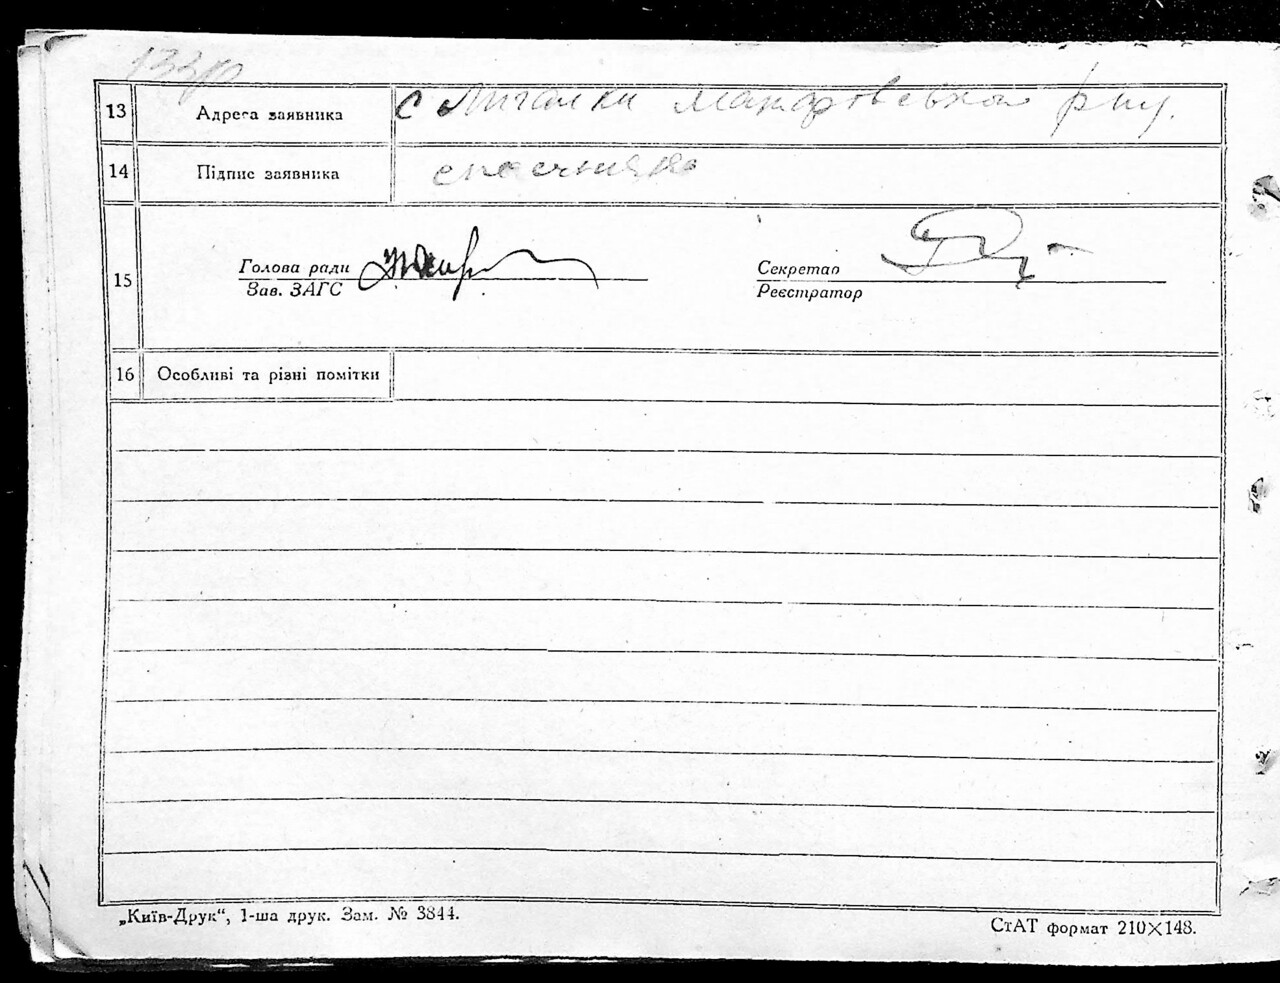 133р
13 Адреса заявника с Мигалки Макаровської р-ну.
14 Підпис заявника
15 Голова ради Секретар
Зав. ЗАГС Реєстратор
16 Особливі та різні помітки
„Київ-Друк“, 1-ша друк. Зам. № 3844.
СтАТ формат 210×148.